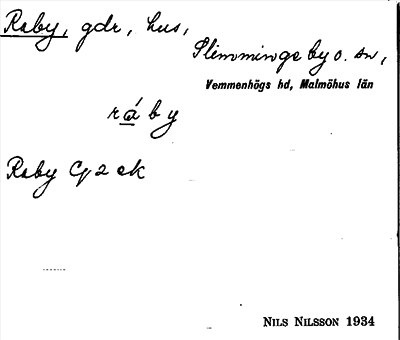 Raby, gdr, hus,
Slimminge by o. sn,
Vemmenhögs hd, Malmöhus län
ráby
Raby GJ2 ek
NILS NILSSON 1934